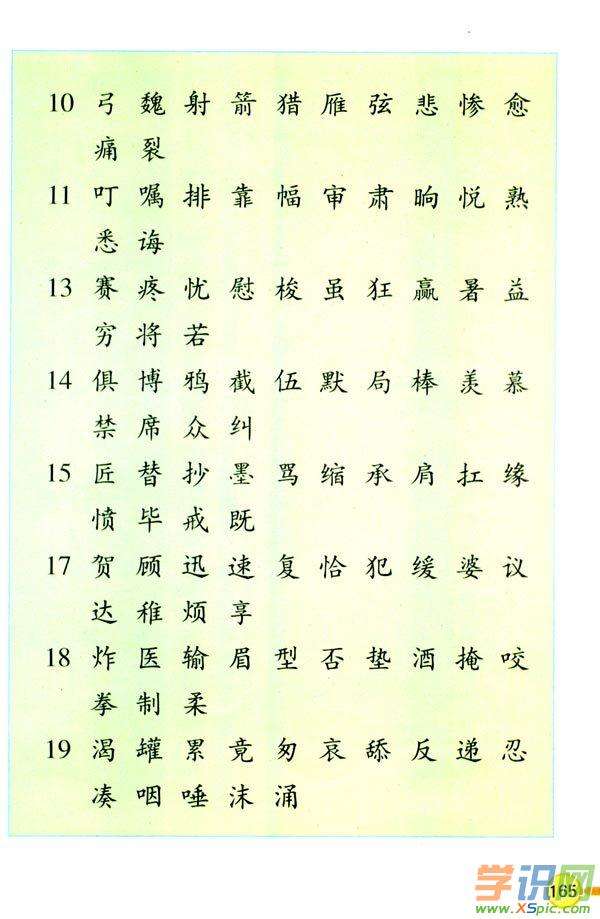 10 弓 魏 射 箭 猎 雁 弦 悲 惨 愈
痛 裂
11 叮 嘱 排 靠 幅 审 肃 晌 悦 熟
悉 诲
13 赛 疼 忧 慰 梭 虽 狂 赢 暑 益
穷 将 若
14 俱 博 鸦 截 伍 默 局 棒 羡 慕
禁 席 众 纠
15 匠 替 抄 墨 骂 缩 承 肩 扛 缘
愤 毕 戒 既
17 贺 顾 迅 速 复 恰 犯 缓 婆 议
达 稚 烦 享
18 炸 医 输 眉 型 否 垫 酒 掩 咬
拳 制 柔
19 渴 罐 累 竟 匆 哀 舔 反 递 忍
凑 咽 唾 沫 涌
165
学识网
www.XSpic.com